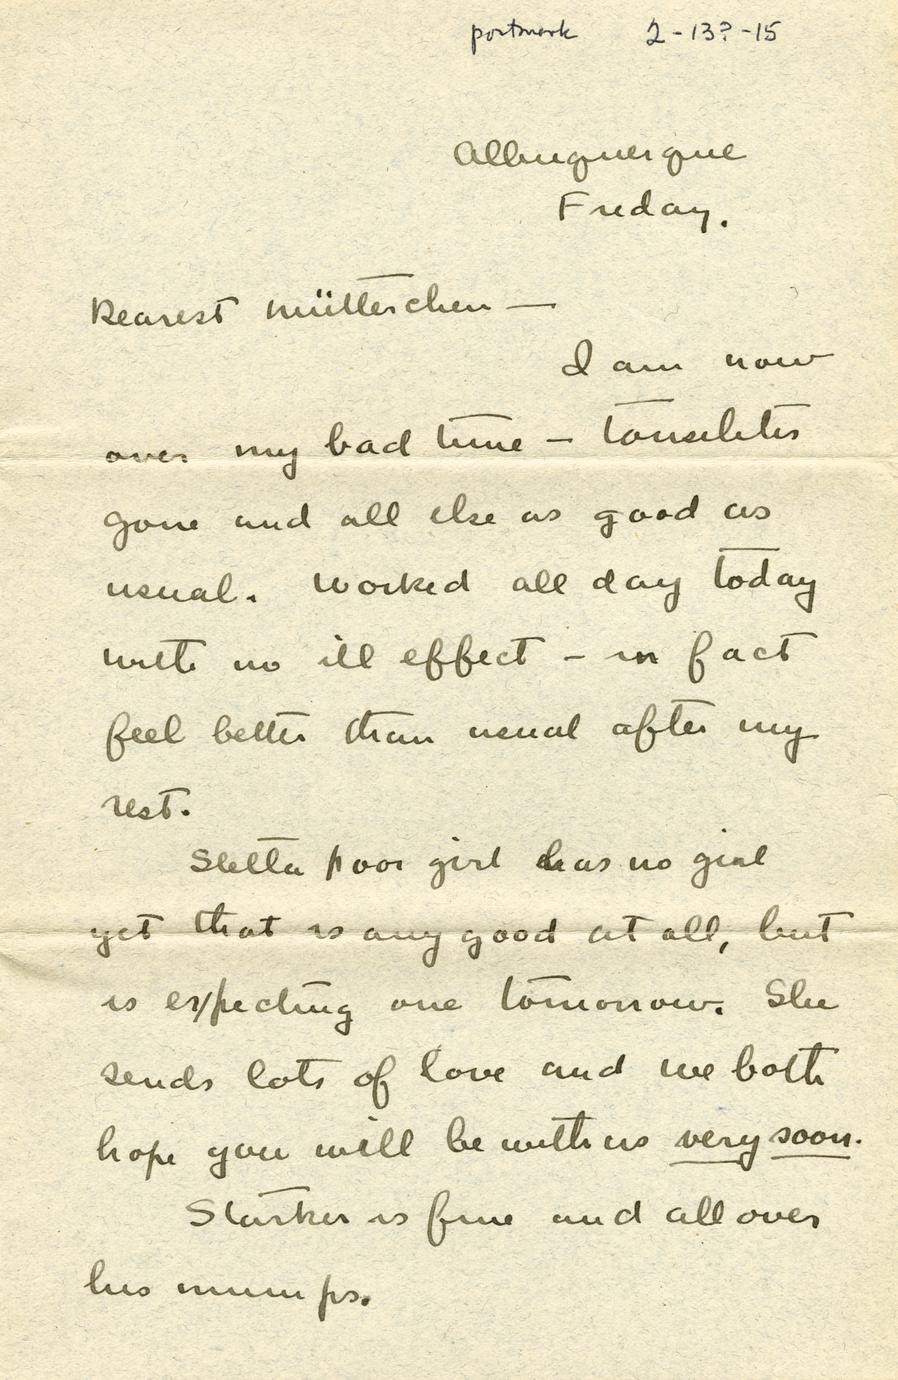 postmark 2-13?-15
Albuquerque
Friday.
Dearest Mütterchen —
I am now
over my bad time — tonsilitis
gone and all else as good as
usual. Worked all day today
with no ill effect — in fact
feel better than usual after my
rest.
Stella poor girl has no girl
yet that is any good at all, but
is expecting one tomorrow. She
sends lots of love and we both
hope you will be with us very soon.
Starker is fine and all over
his mumps.